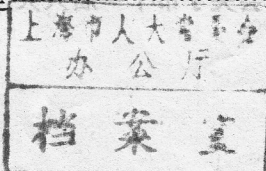 上海市人大常委会
办公厅
档案室